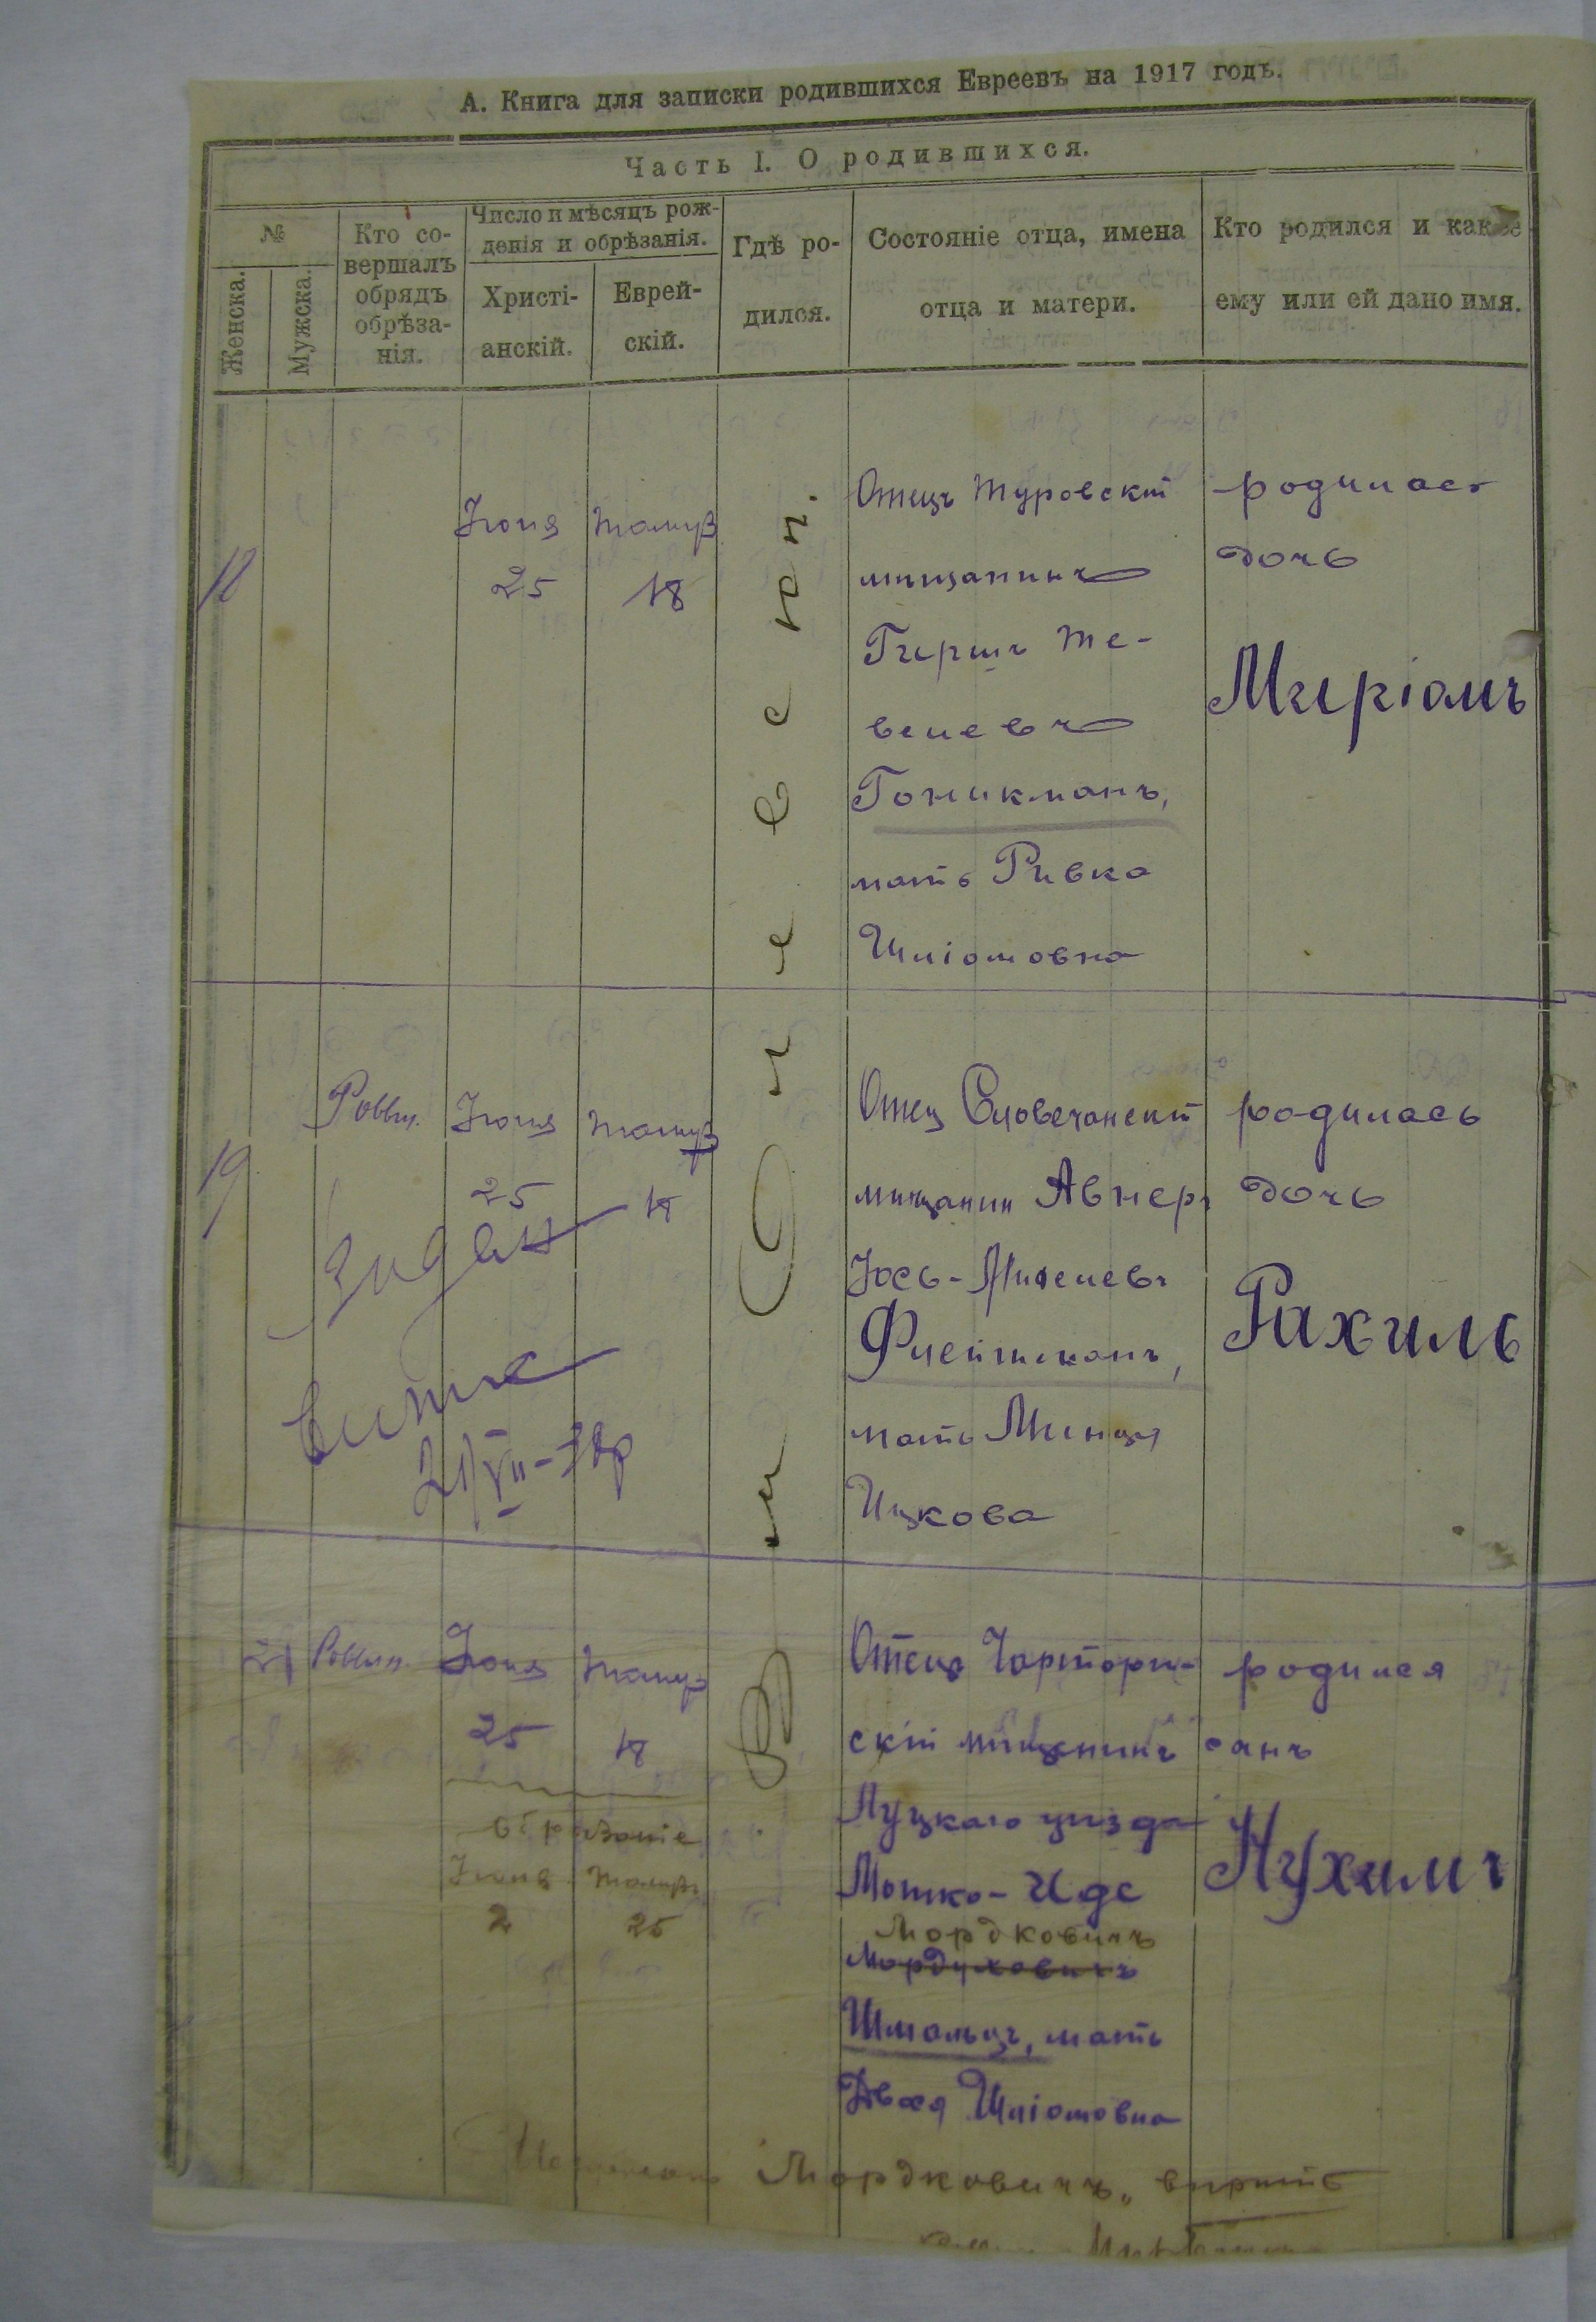 А. Книга для записки родившихся Евреевъ на 1917 годъ.
Часть I. О родившихся.
№
Женска.
Мужска.
Кто со-
вершалъ
обрядъ
обрѣза-
нія.
Число и мѣсяцъ рож-
денія и обрѣзанія.
Христі-
анскій.
Еврей-
скій.
Гдѣ ро-
дился.
Состояніе отца, имена
отца и матери.
Кто родился и какое
ему или ей дано имя.
18
Іюня
25
Тамуз
18
Отецъ Туровскій
мѣщанинъ
Гершъ Те-
велевъ
Гоникманъ,
мать Ривка
Шліомовна
родилась
дочь
Миріамъ
19
Равви.
Іюня
25
Тамуз
18
21/VII-38р
Отец Словечанскій
мѣщанин Авнеръ
Іось-
Флейшманъ,
мать Минця
Ицкова
родилась
дочь
Рахиль
21
Раввин.
Іюня
25
Тамуз
18
обрѣзаніе
Іюля
2
Тамуз
25
Отецъ Чартори-
скій мѣщанинъ
Луцкаго уѣзда
Мошко-Иде
Мордковичъ
Мордуховичъ
Шмальцъ, мать
Двося Шліомовна
родился
сынъ
Нухимъ
Мордковичъ" вѣрить